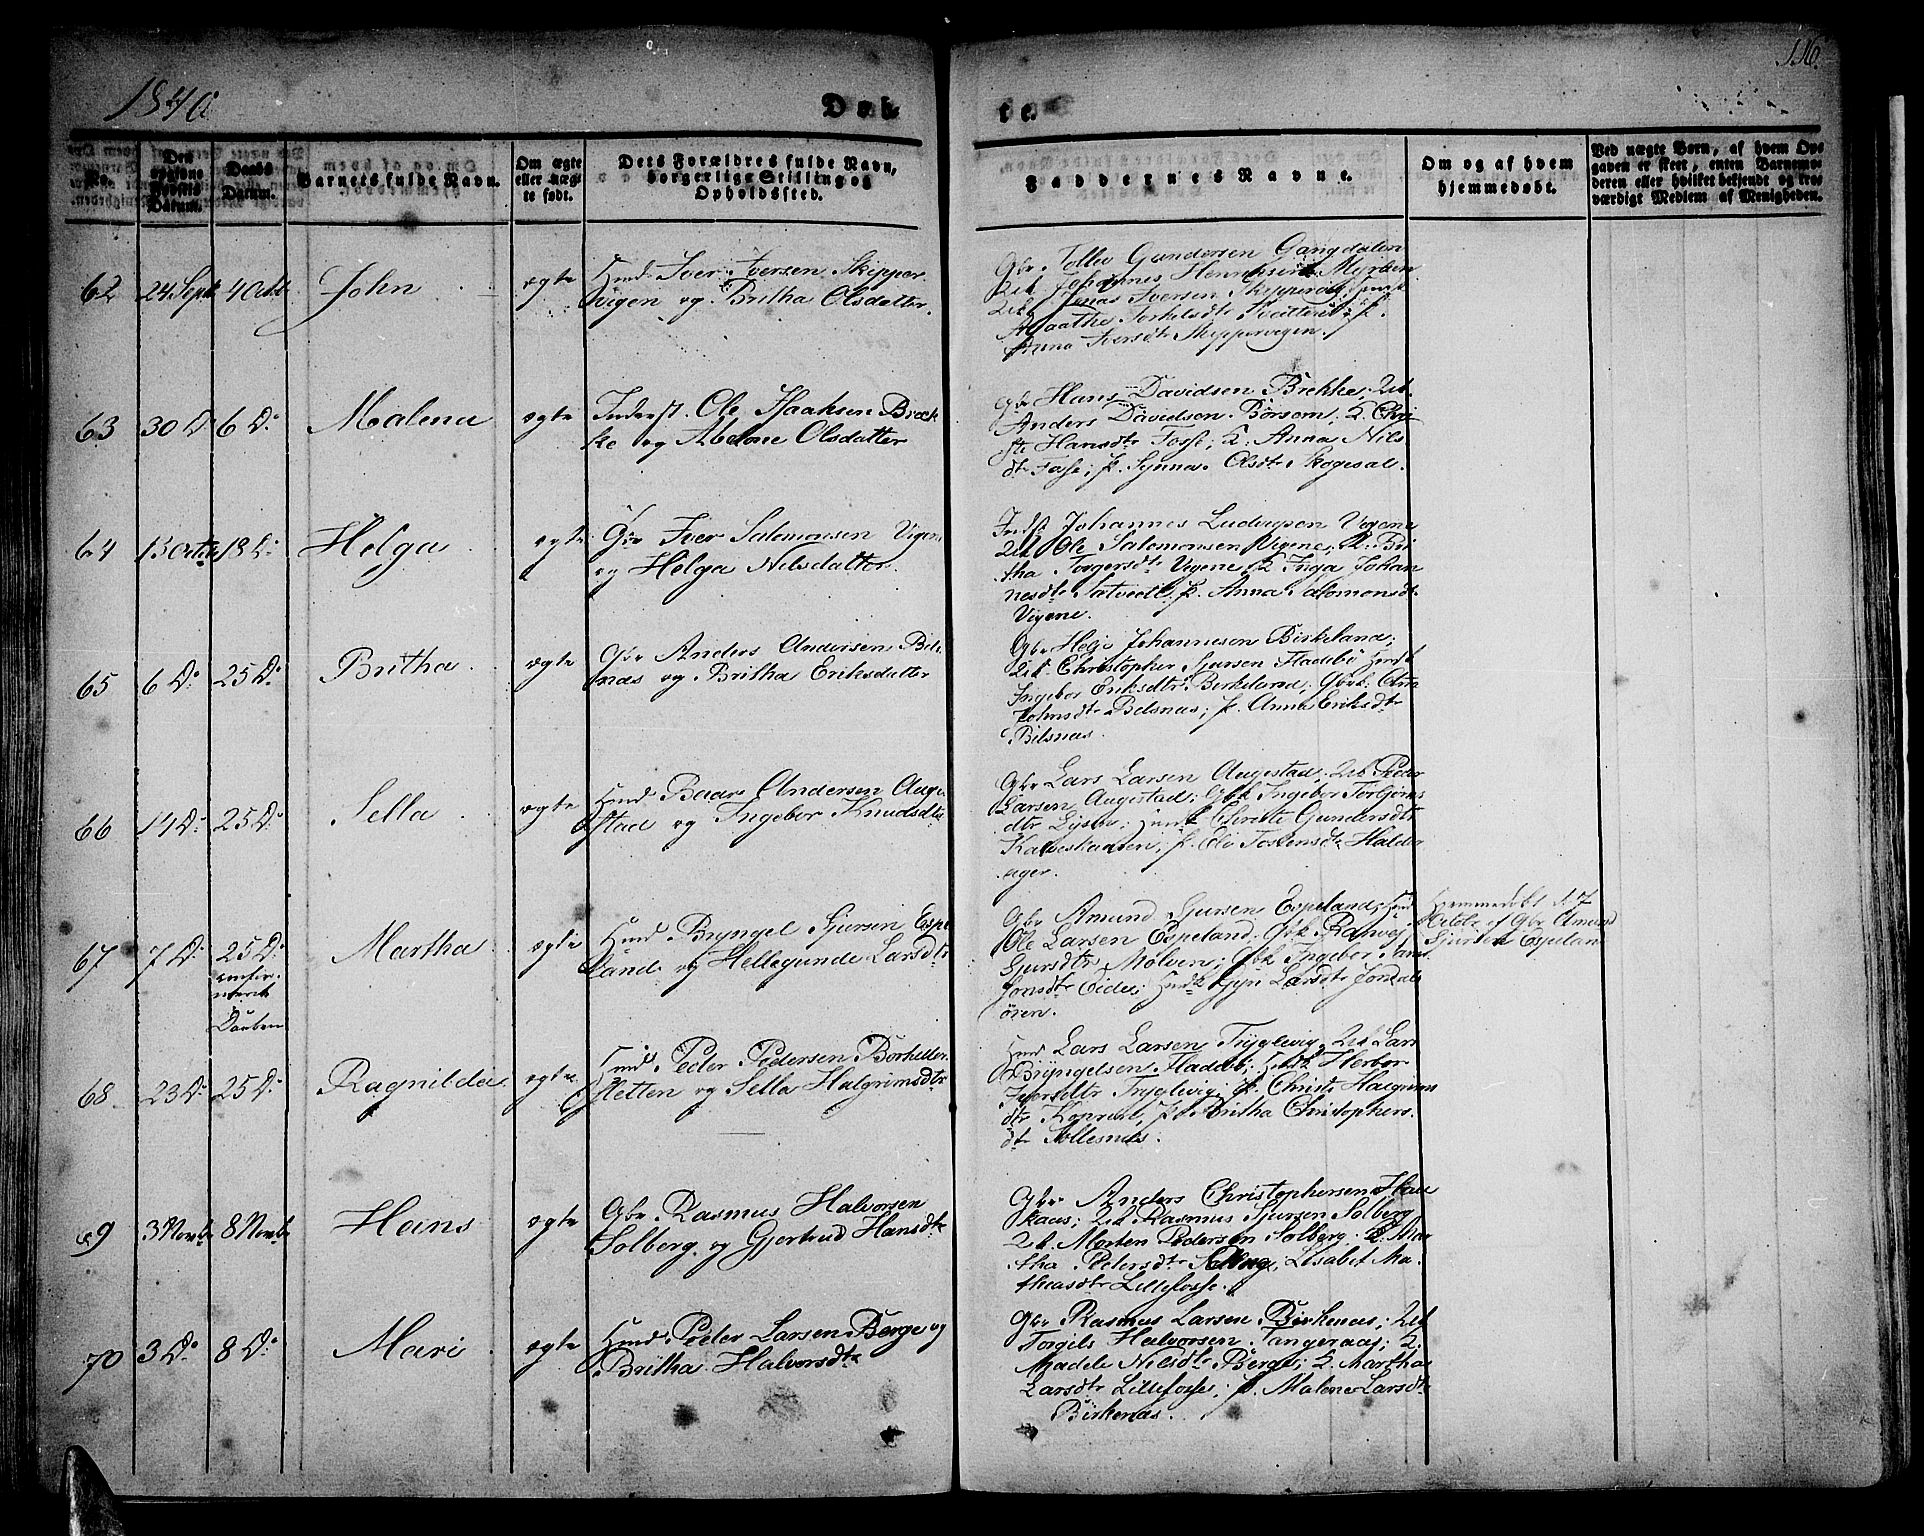 1840
116.
Døbte.
No.
Den opgivne Fødsels Datum.
Daabs Datum.
Barnets fulde Navn.
Om ægte eller uægte født.
Dets Forældres fulde Navn, borgerlige Stilling og Opholdssted.
Faddernes Navne.
Om og af hvem hjemmedøbt.
Ved uægte Børn, af hvem Opgaven er skeet, enten Barnemoderen eller hvilket bekjendt og troværdigt Medlem af Menigheden.
62 24 Sept 4 Octb John ægte
Huusmd: Iver Iversen Skipper
vigen og Britha Olsdatter.
Gbr. Tollev Gundersen Gangdalen
Johannes Henriksen Myrken
Jonas Iversen
Agaathe Torkelsdtr
Anna Iversdtr Skippervigen
63 30 D 6 D: Malena ægte
Inderst. Ole Isaaksen Brek
ke og Abelone Olsdatter
Gbr Hans Davidsen Brekke, Uk
Anders Davidsen Børsem, K. Chri
ste Hansdtr Fosse; K. Anna Nils
dtr Fosse; p. Synna Olsdtr Skogesal.
64 15 Octb 18 D: Helga ægte
Gbr Iver Salomonsen Vigene
og Helga Nilsdatter.
Indst Johannes Ludvigsen Vigene
Uk Ole Salomonsen Vigene; K. Bri
tha Torgersdtr Vigene, K Inga Johan
nesdtr p. Anna Salomonsdtr
Vigene.
65 6 D: 25 D: Britha ægte
Gbr Anders Andersen Bils
næs og Britha Eriksdatter
Gbr Helje Johannesen Birkeland;
Uk Christopher Sjursen Fladebø
Ingebor Eriksdtr Birkeland; Gbrk.
Johnsdtr Belsnæs; p. Anna Eriksdtr
Bilsnæs.
66 14 D: 25 D: Sella ægte
Huusmd Baar Andersen Auge
stad og Ingebor Knudsdtr
Gbr Lars Larsen Augestad; Uk Peder
Larsen Augestad; Gbk Ingebor Torbjørns
dtr Christe Gundersdtr
p. Tostensdtr Halder
ager.
67 7 D: 25 D: Martha ægte
Huusmd Bryngel Sjursen Espe
land og Hellegunde Larsdtr
Gbr Amund Sjursen Espeland;
Ole Larsen Espeland. Gbk Ranvei
Sjursdtr Mølven; Gbk Ingebor
Jonsdtr Eide; Larsdtr Jordal
øren.
Hjemmedøbt d. 7
Octbr af Gbr Amund
Sjursen Espeland
confir
meret
Daaben
68 23 D: 25 D: Ragnilde ægte
Huusmd Peder Pedersen Borkelle
sletten og Sella Halgrimsdtr
Lars Larsen Tryglevig, Uk Lars
Bryngelsen Fladebø; Herbor
Iversdtr Tryglevig; p. Christi Halgrims
dtr p. Britha Christophers
dtr Sollesnæs.
69 3 Novb 8 Novb Hans ægte
Gbr. Rasmus Halvorsen
Solberg og Gjertrud Hansdtr
Gbr. Anders Christophersen Hau
kaas; Uk Rasmus Sjursen Solberg
Uk. Morten Pedersen Solberg. K. Mar
tha Pedersdtr Solberg, Lisabet Ma
theasdtr Lillefosse.
70 3 D: 8 D: Mari ægte
Huusmd: Peder Larsen Berge og
Britha Halvorsdtr
Gbr Rasmus Larsen Birkenæs; Uk
Torgils Halvorsen Tangeraas; K.
Madele Nilsdtr Berge; K. Martha
Larsdtr Lillefosse; p. Malene Larsdtr
Birkenæs.